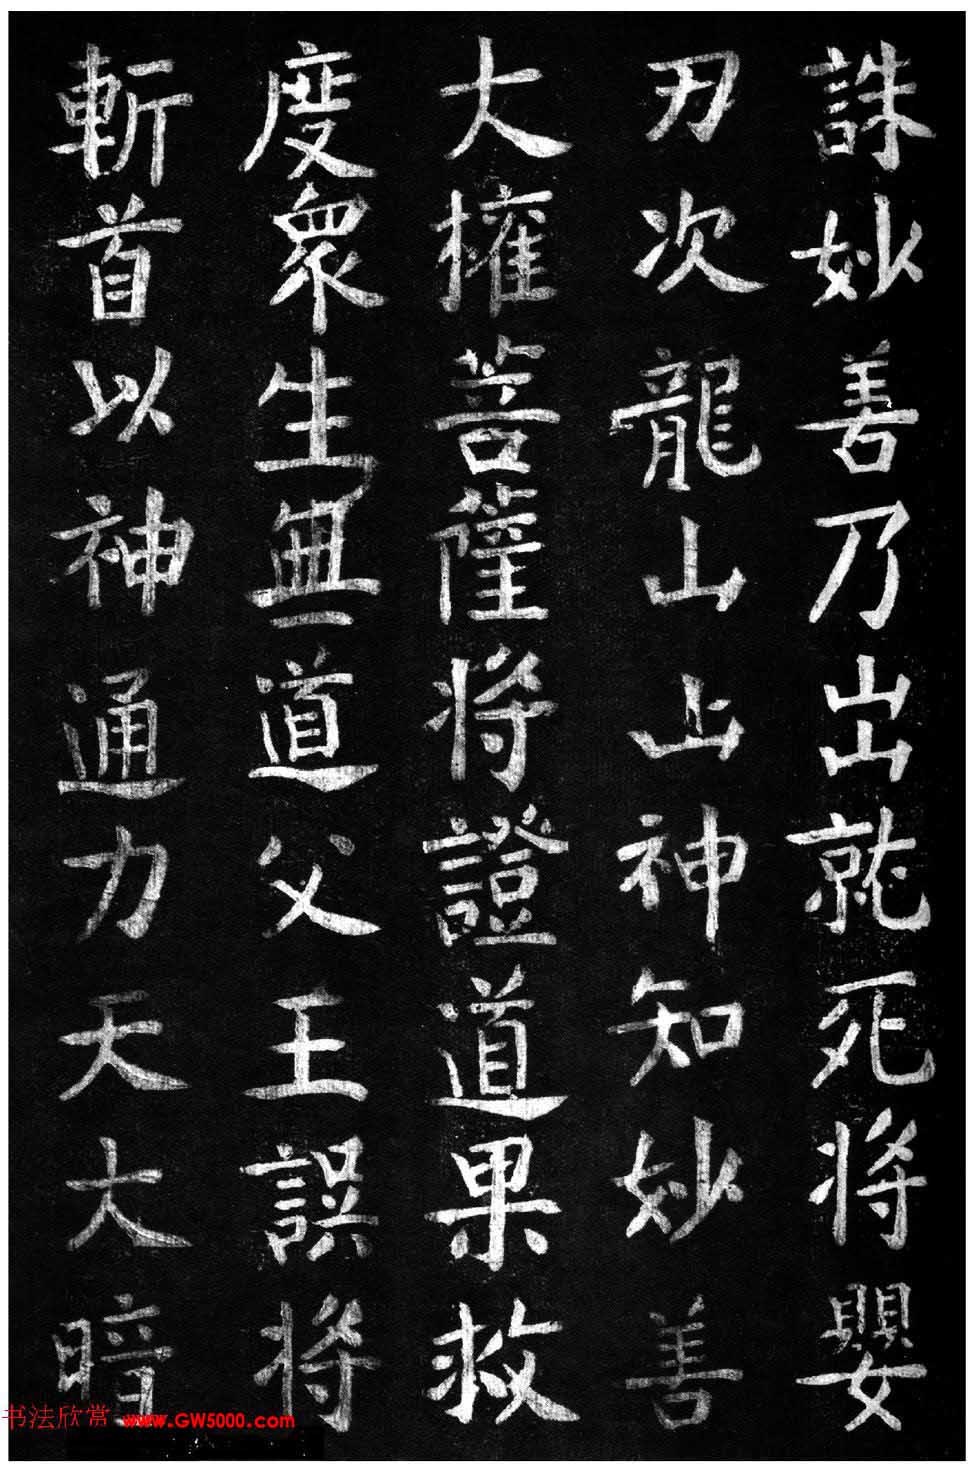 誅妙善乃出就死將嬰
刃次龍山山神知妙善
大權菩薩將證道果救
度衆生無道父王誤將
斬首以神通力天大暗
书法欣赏 www.GW5000.com